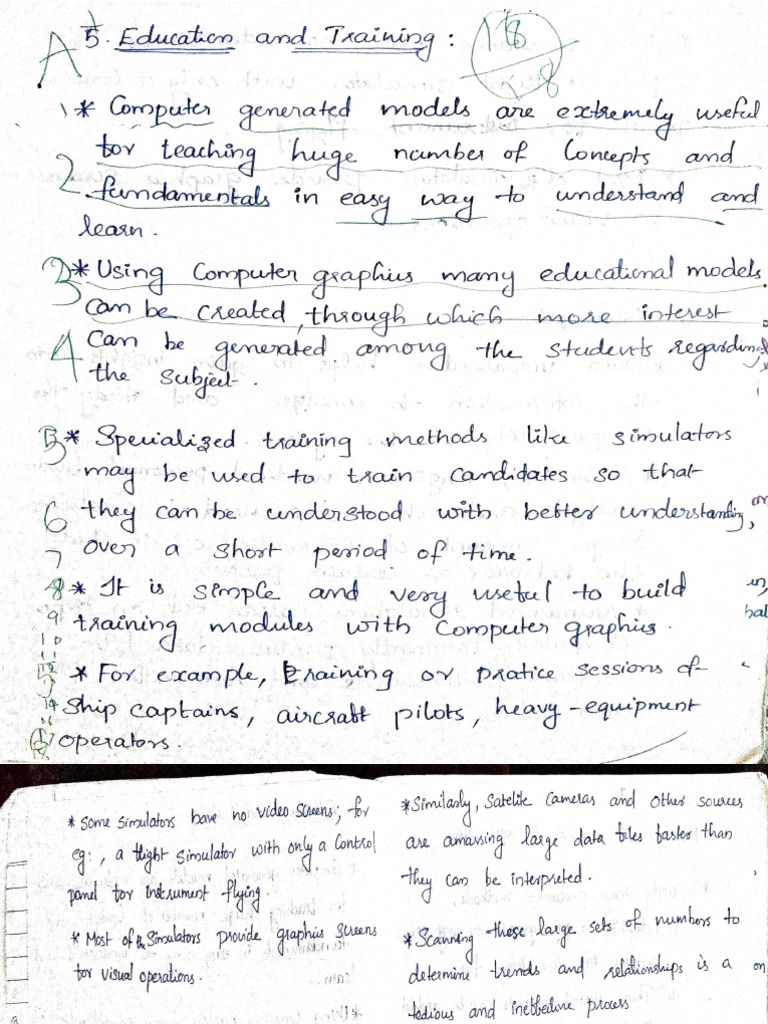 5. Education and Training :
18
28
* Computer generated models are extremely useful
for teaching huge number of Concepts and
fundamentals in easy way to understand and
learn.
* Using Computer graphius many educational models.
can be created, through which more interest
can be generated among the students regarding
the subject.
* Specialized training methods like simulators
may be used to train candidates so that
they can be understood with better understanding,
over a short period of time.
* It is simple and very useful to build
training modules with computer graphius.
* For example, training or pratice sessions of
ship captains, aircraft pilots, heavy-equipment
operators.
* Some simulators have no video screens, for
eg:, a flight simulator with only a control
panel for instrument flying.
* Most of the simulators provide graphius screens
for visual operations.
* Similarly, satelite cameras and other sources
are amassing large data files faster than
they can be interpreted.
* Scanning these large sets of numbers to
determine trends and relationships is a
tedious and ineffective process